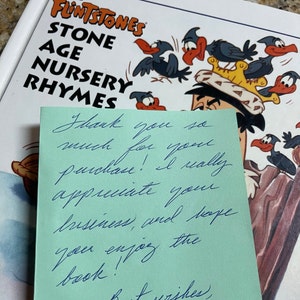 FLINTSTONES
STONE
AGE
NURSERY
RHYMES
Thank you so
much for your
purchase! I really
appreciate your
business, and hope
you enjoy the
book!
Best wishes